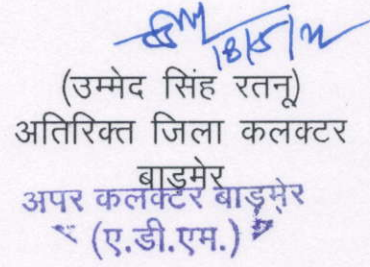 18/5/
(उम्मेद सिंह रतनू)
अतिरिक्त जिला कलक्टर
बाड़मेर
अपर कलक्टर बाड़मेर
(ए.डी.एम.)